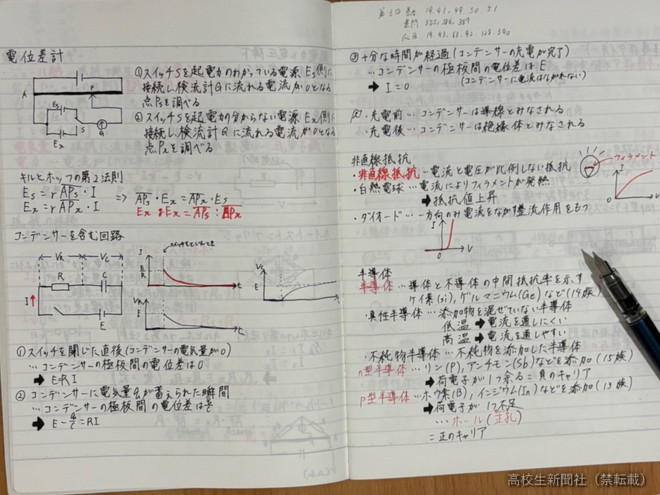 電位差計
①スイッチSを起電力のわかっている電源Es側に
接続し、検流計Gに流れる電流が0となる
点Psを調べる
②スイッチSを起電力の分からない電源Ex側に
接続し検流計Gに流れる電流が0となる
点Pxを調べる
キルヒホッフの第2法則
Es = r APs・I
Ex = r APx・I
⇒ APs・Ex = APx・Es
コンデンサーを含む回路
VR VC
R C
I
S E
①スイッチを閉じた直後(コンデンサーの電気量が0)
…コンデンサーの極板間の電位差は0
➡ E=RI
②コンデンサーに電気量qが蓄えられた瞬間
…コンデンサーの極板間の電位差は
➡ E-q/c=RI
③十分な時間が経過(コンデンサーの充電が完了)
…コンデンサーの極板間の電位差はE
➡ I=0
(コンデンサーに電流はながれない)
充電前…コンデンサーは導線とみなされる
・充電後…コンデンサーは絶縁体とみなされる
非直線抵抗
・非直線抵抗…電流と電圧が比例しない抵抗
フィラメント
・白熱電球…電流によりフィラメントが発熱
➡抵抗値上昇
・ダイオード…一方向のみ電流をながす整流作用をもつ
半導体
半導体…導体と不導体の中間抵抗率を示す
ケイ素(Si)、ゲルマニウム(Ge)など(14族)
・真性半導体…添加物を混ぜていない半導体
低温➡電流を通しにくい
高温➡電流を通しやすい
・不純物半導体…不純物を添加した半導体
n型半導体…リン(P)、アンチモン(Sb)などを添加(15族)
➡荷電子が1つ余る=負のキャリア
p型半導体…ホウ素(B)、インジウム(In)などを添加(13族)
➡荷電子が1つ不足
…ホール(正孔)
=正のキャリア
高校生新聞社(禁転載)